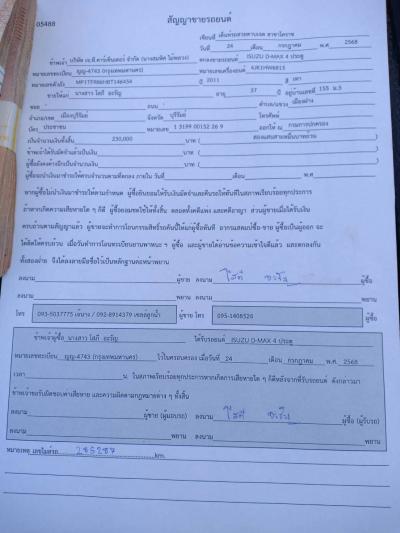 05488
สัญญาขายรถยนต์
เขียนที่ เต็นท์รถสวยตานเจต สาขาโคราช
วันที่ 24 เดือน กรกฎาคม พ.ศ. 2568
ข้าพเจ้า บริษัท เจ.ที.คาร์เซ็นเตอร์ จำกัด ตกลงขายรถยนต์ ISUZU D-MAX 4 ประตู
หมายเลขทะเบียน ญญ-4743 (กรุงเทพมหานคร) หมายเลขเครื่องยนต์
หมายเลขตัวถัง ปี 2011 สี เทา
ขายให้แก่ นางสาว โสภี อะรัญ อายุ 37 ปี อยู่บ้านเลขที่ 155 ม.5
ซอย ถนน ตำบล/แขวง เมืองฝาง
อำเภอ/เขต เมืองบุรีรัมย์ จังหวัด บุรีรัมย์ โทรศัพท์
บัตร ประชาชน หมายเลข 1 3199 00152 26 9 ออกให้ ณ กรมการปกครอง
เป็นจำนวนเงินทั้งสิ้น 230,000 บาท ( สองแสนสามหมื่นบาทถ้วน )
ข้าพเจ้าได้รับมัดจำแล้วเป็นเงิน บาท ( )
ผู้ซื้อยังคงค้างอีกเป็นจำนวนเงิน บาท ( )
ผู้ซื้อจะนำเงินมาชำระให้ครบจำนวนตามที่ตกลง ภายใน วันที่ เดือน พ.ศ.
หากผู้ซื้อไม่นำเงินมาชำระให้ตามกำหนด ผู้ซื้อยินยอมให้รับเงินมัดจำและคืนรถให้ทันทีในสภาพเรียบร้อยทุกประการ
ถ้าหากเกิดความเสียหายใด ๆ ก็ดี ผู้ซื้อยอมชดใช้ให้ทั้งสิ้น ตลอดทั้งคดีแพ่ง และคดีอาญา ส่วนผู้ขายเมื่อได้รับเงิน
ครบถ้วนตามสัญญาแล้ว ผู้ขายจะทำการโอนกรรมสิทธิ์รถคันนี้ให้แก่ผู้ซื้อทันที อากรแสตมป์ซื้อ-ขาย ผู้ซื้อเป็นผู้ออก จะ
ได้คิดให้ครบถ้วน เมื่อวันทำการโอนทะเบียนยานพาหนะ ฯ ผู้ซื้อ และผู้ขายได้อ่านข้อความเข้าใจดีแล้ว และตกลงกัน
ทั้งสองฝ่าย จึงได้ลงลายมือชื่อไว้เป็นหลักฐานต่อหน้าพยาน
ลงนาม ผู้ขาย ลงนาม โสภี อะรัญ ผู้ซื้อ
ลงนาม พยาน ลงนาม พยาน
โทร ผู้ขาย โทร 095-1408520 ผู้ซื้อ
ข้าพเจ้าผู้ซื้อ นางสาว โสภี อะรัญ ได้รับรถยนต์ ISUZU D-MAX 4 ประตู
หมายเลขทะเบียน ญญ-4743 (กรุงเทพมหานคร) ไว้ในครอบครอง เมื่อวันที่ 24 เดือน กรกฎาคม พ.ศ. 2568
เวลา น. ในสภาพเรียบร้อยทุกประการหากเกิดการเสียหายใด ๆ ก็ดีหลังจากที่รับรถยนต์ ดังกล่าวมา
ข้าพเจ้าขอรับผิดชอบค่าเสียหาย และความผิดตามกฎหมายต่าง ๆ ทั้งสิ้น
ลงนาม ผู้ขาย (ผู้มอบรถ) ลงนาม โสภี อะรัญ ผู้ซื้อ (ผู้รับรถ)
ลงนาม พยาน ลงนาม พยาน
หมายเหตุ เลขไมล์รถ 285287 km.